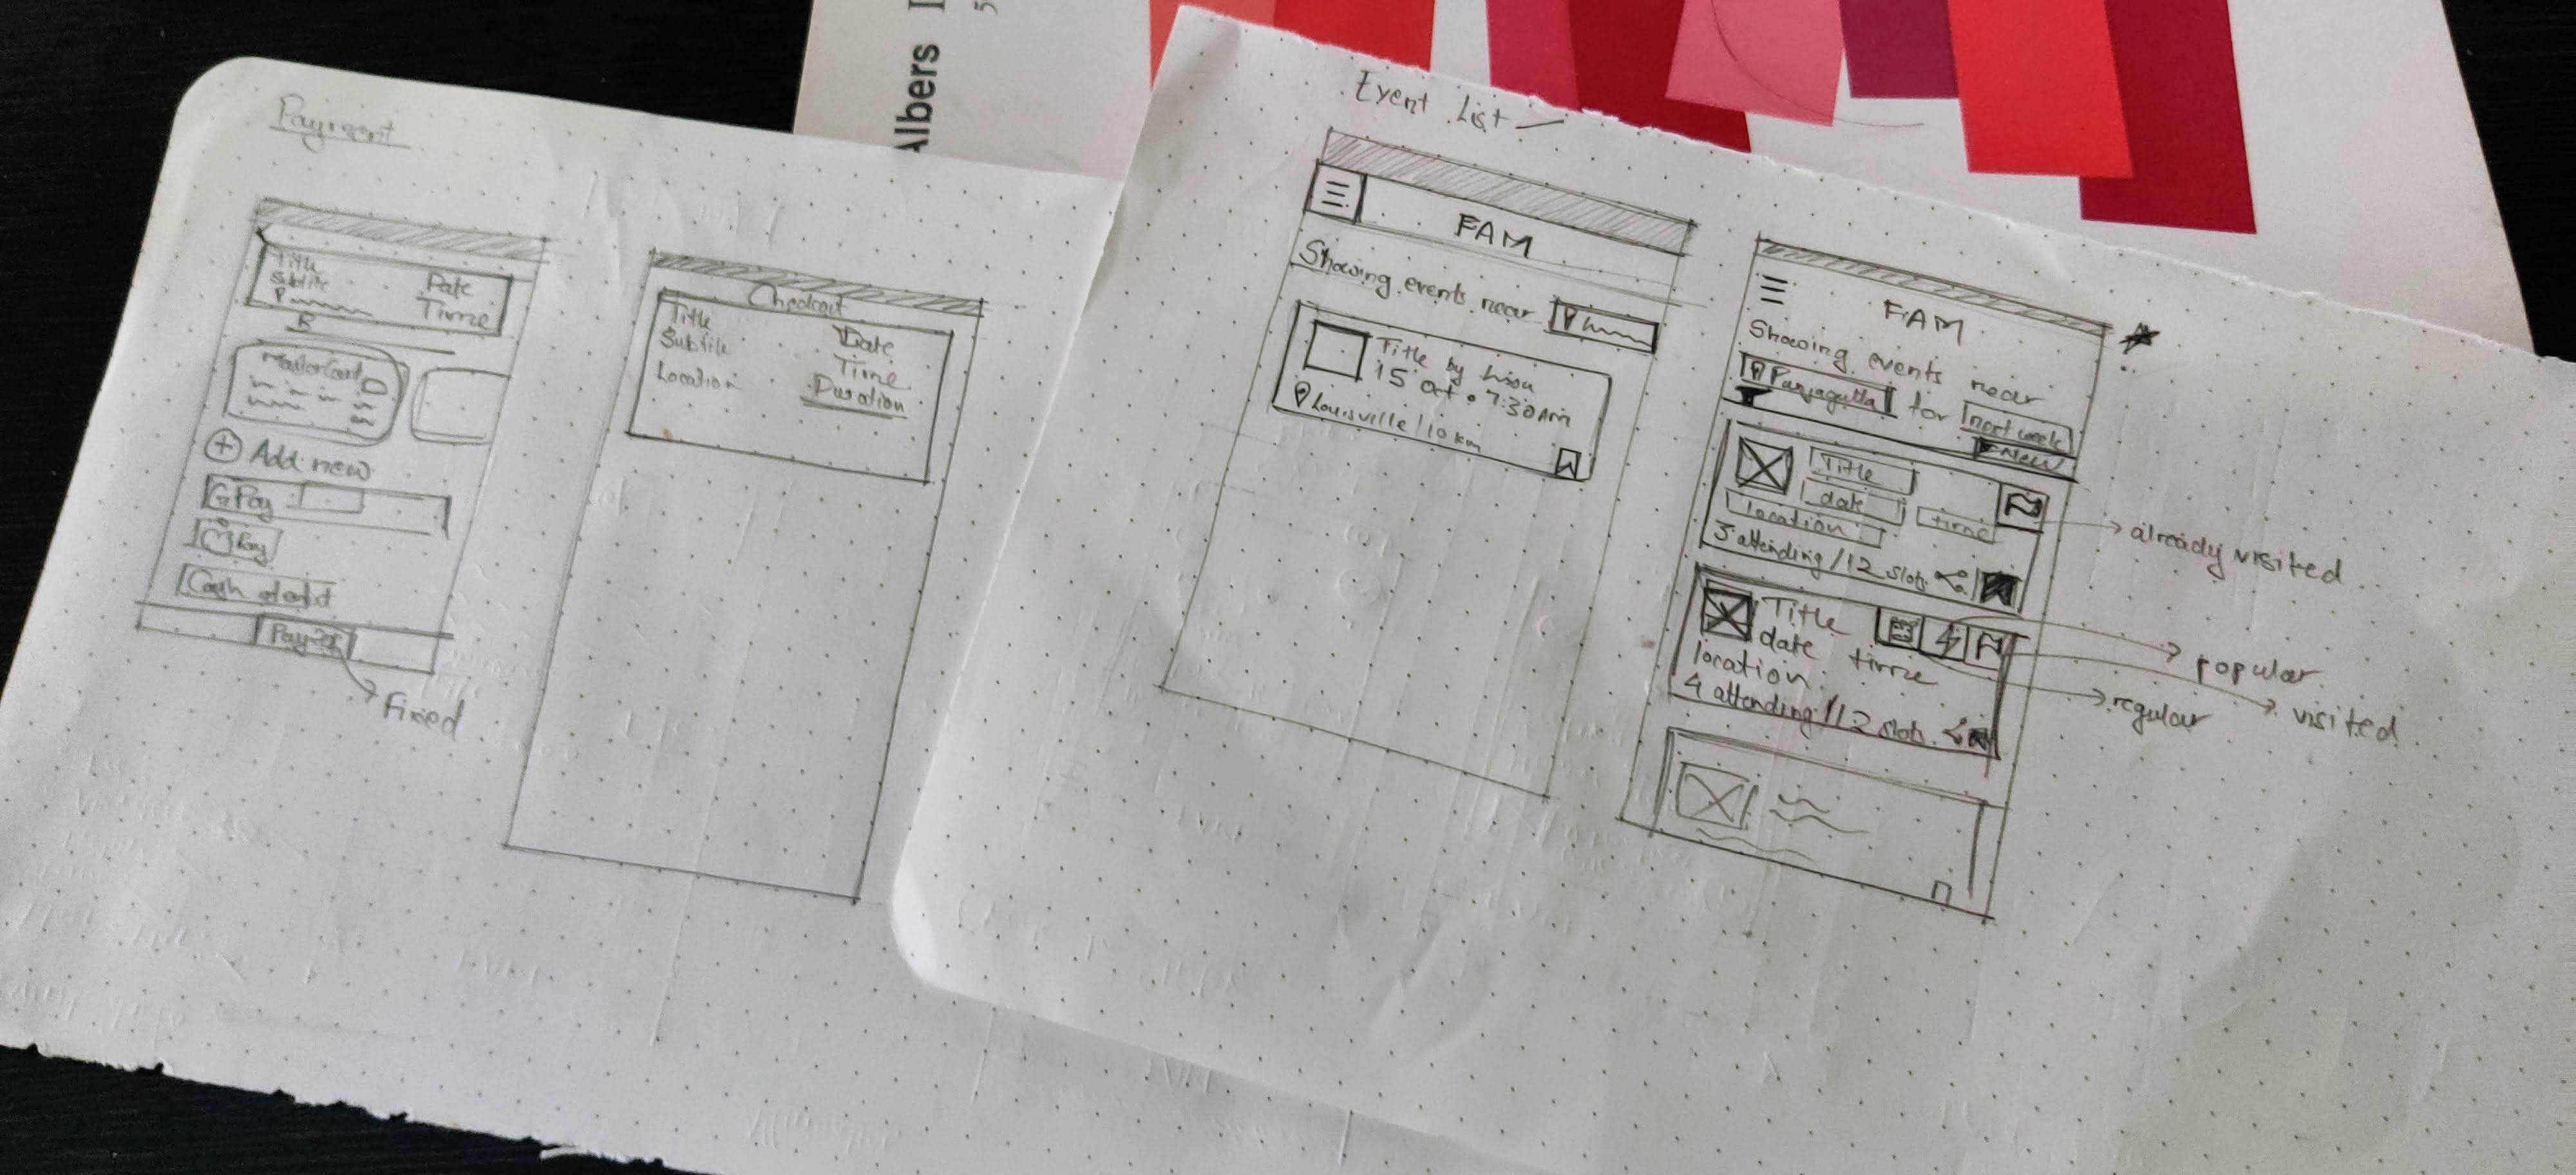 Payment
Title
Subtitle
Date
Time
MasterCard
Add new
G Pay
Pay
Pay
Fixed
Checkout
Title
Subtitle
Location
Date
Time
Duration
Albers
Event List
FAM
Showing events near
Title by
15 Oct • 7:30AM
Louisville / 10 km
FAM
Showing events near
Panjagutta for next week
New
Title
date
time
location
3 attending / 12 slots
already visited
Title
date time
location
4 attending / 12 slots
popular
regular
visited